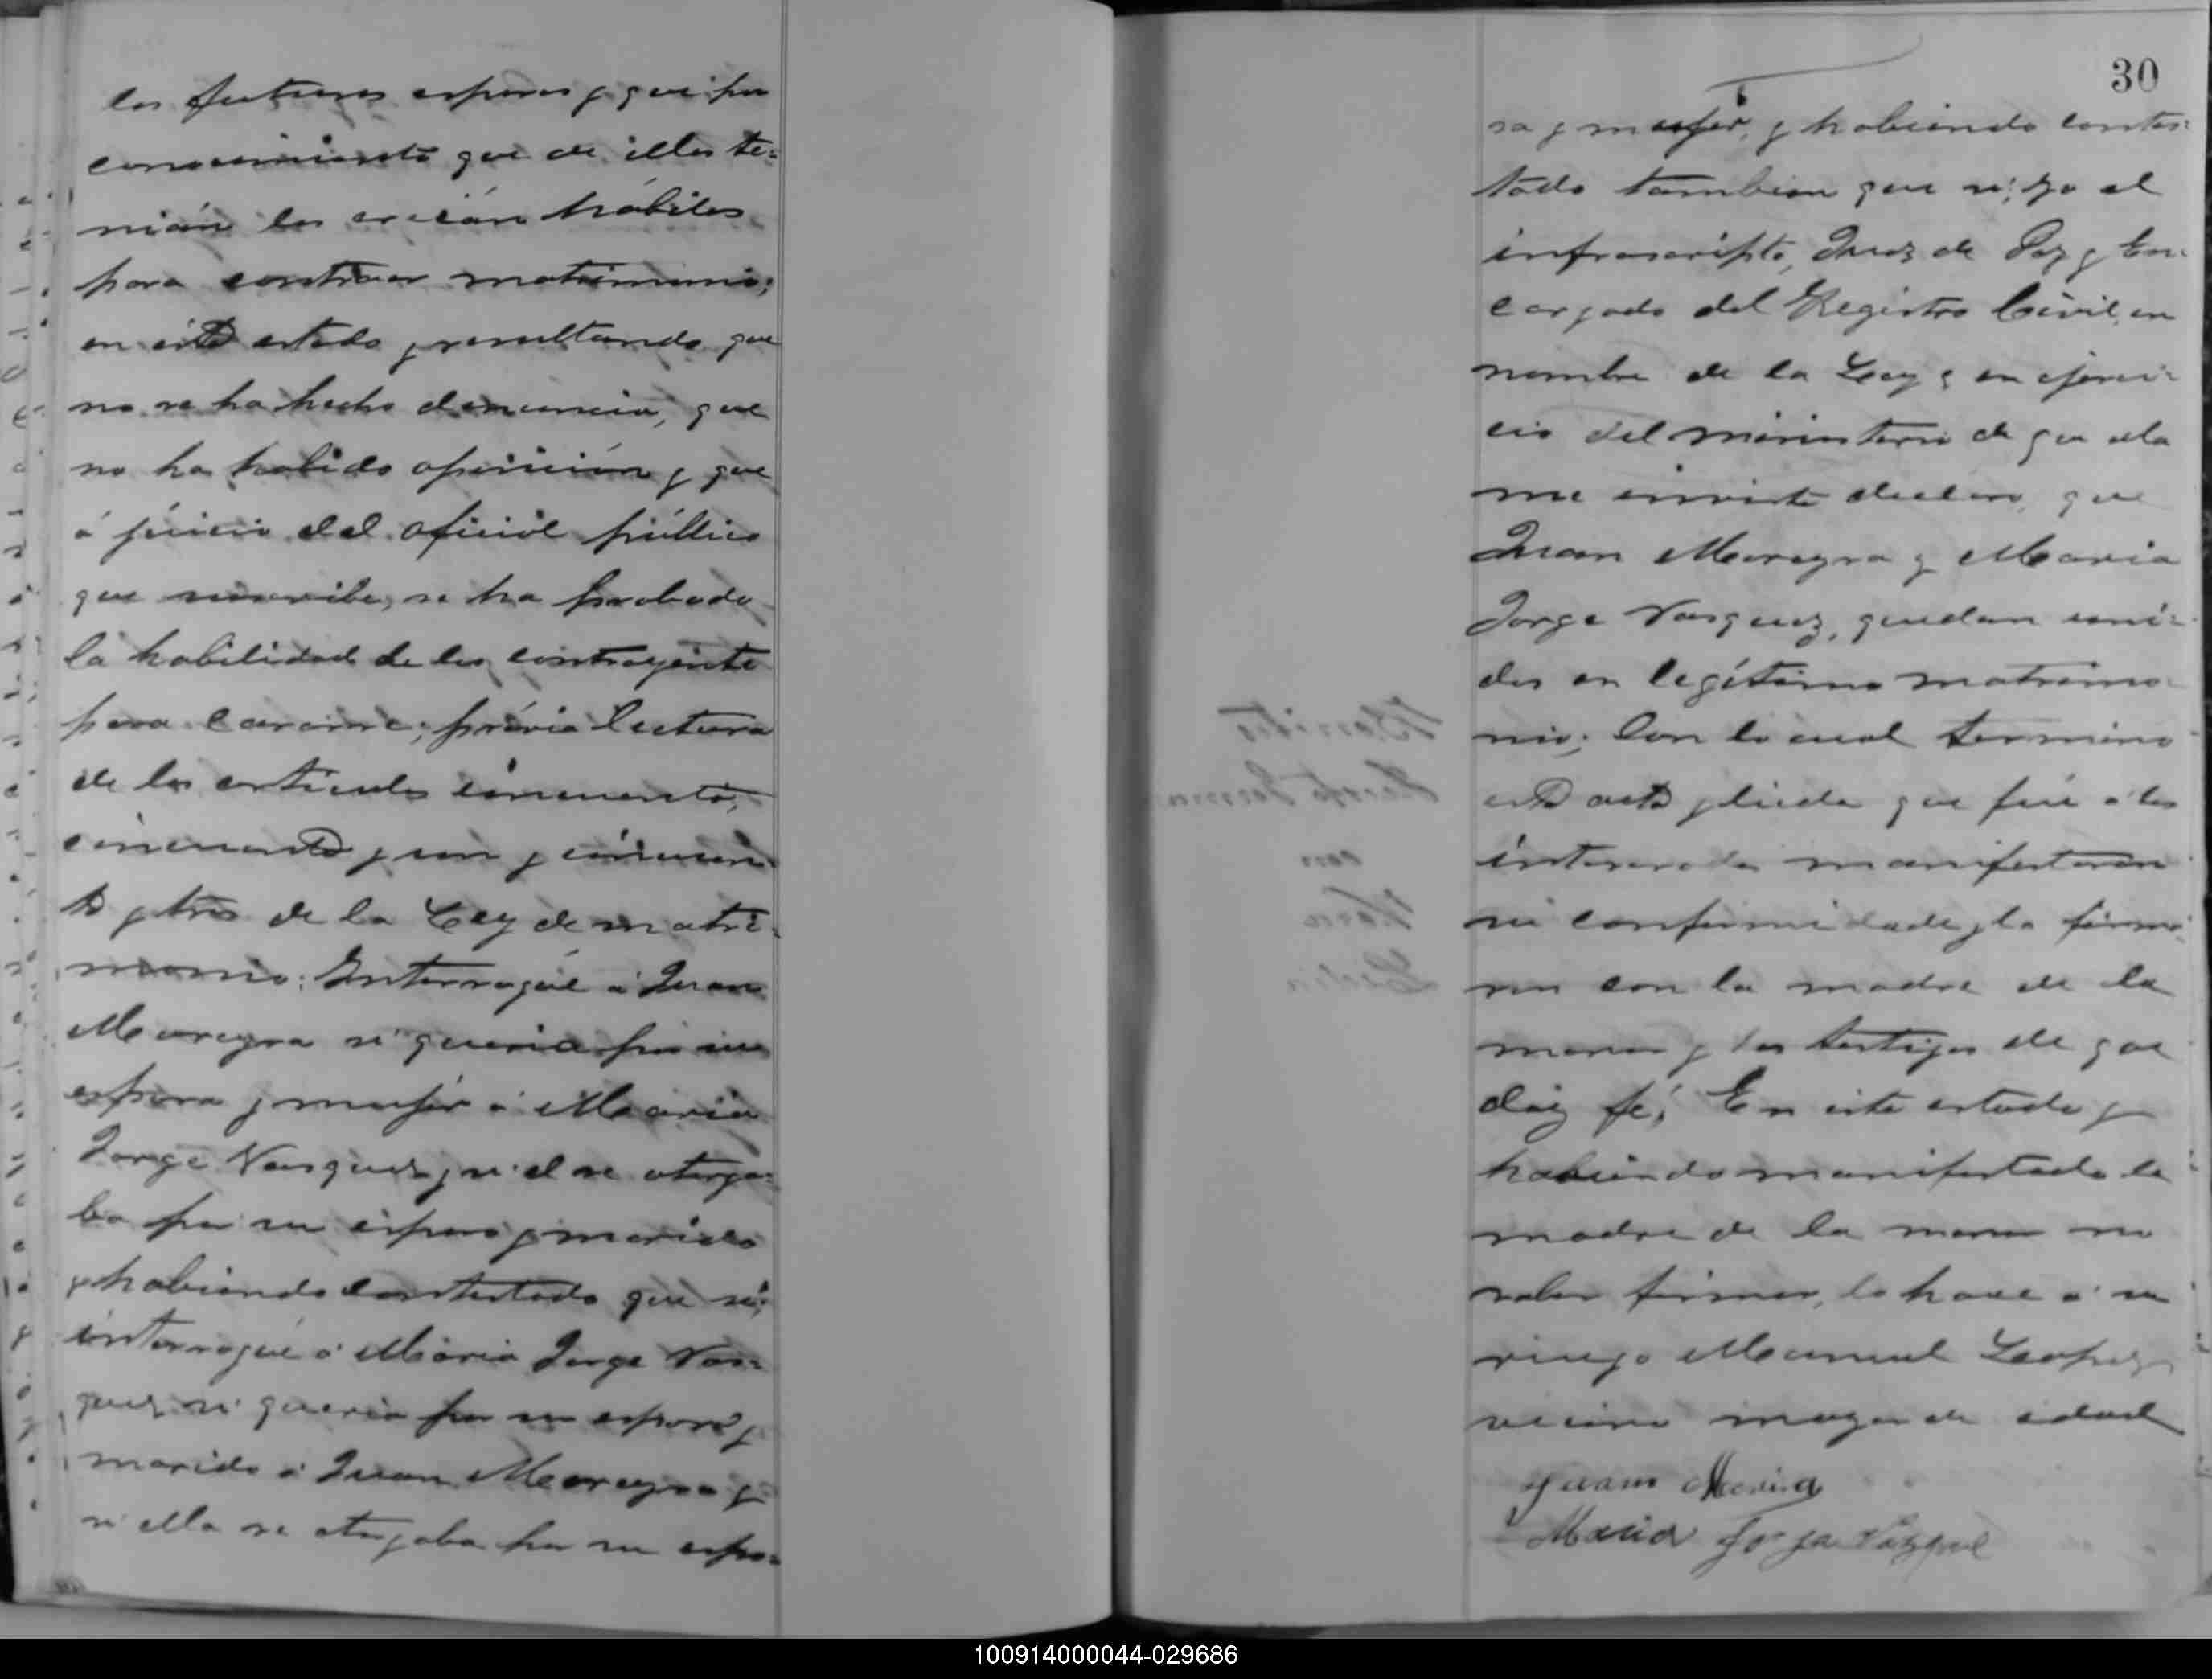 los futuros esposos y que por
conocimiento que de ellos te=
nian los creian hábiles
para contraer matrimonio;
en este estado y resultando que
no se ha hecho denuncia, que
no ha habido oposición y que
á juicio del oficial público
que suscribe, se ha probado
la habilidad de los contrayente
para casarse; prévia lectura
de los articulos cincuenta,
cincuenta y uno y cincuen=
ta y tres de la Ley de matri=
monio: Interrogué á Juan
Moreyra si queria por su
esposa y mujer á Maria
Jorge Vasquez y si el se otorga=
ba por su esposo y marido
y habiendo contestado que si;
interrogué á Maria Jorge Vas=
quez si queria por su esposo y
marido á Juan Moreyra y
si ella se otorgaba por su espo=
30
sa y mujer, y habiendo contes=
tado tambien que si; yo el
infrascripto, Juez de Paz y En=
cargado del Registro Civil, en
nombre de la Ley y en ejerci=
cio del ministerio de que ella
me inviste declaro que
Juan Moreyra y Maria
Jorge Vasquez, quedan uni=
dos en legítimo matrimo=
nio; Con lo cual termino
este acto y leida que fué á los
interesados manifestaron
su conformidad y la firma=
ron con la madre de la
menor y los testigos de que
doy fé; En este estado y
habiendo manifestado la
madre de la menor no
saber firmar, lo hace á su
ruego Manuel Lopez
vecino mayor de edad
Juan Moreira
Maria Jorja Vazquel
100914000044-029686